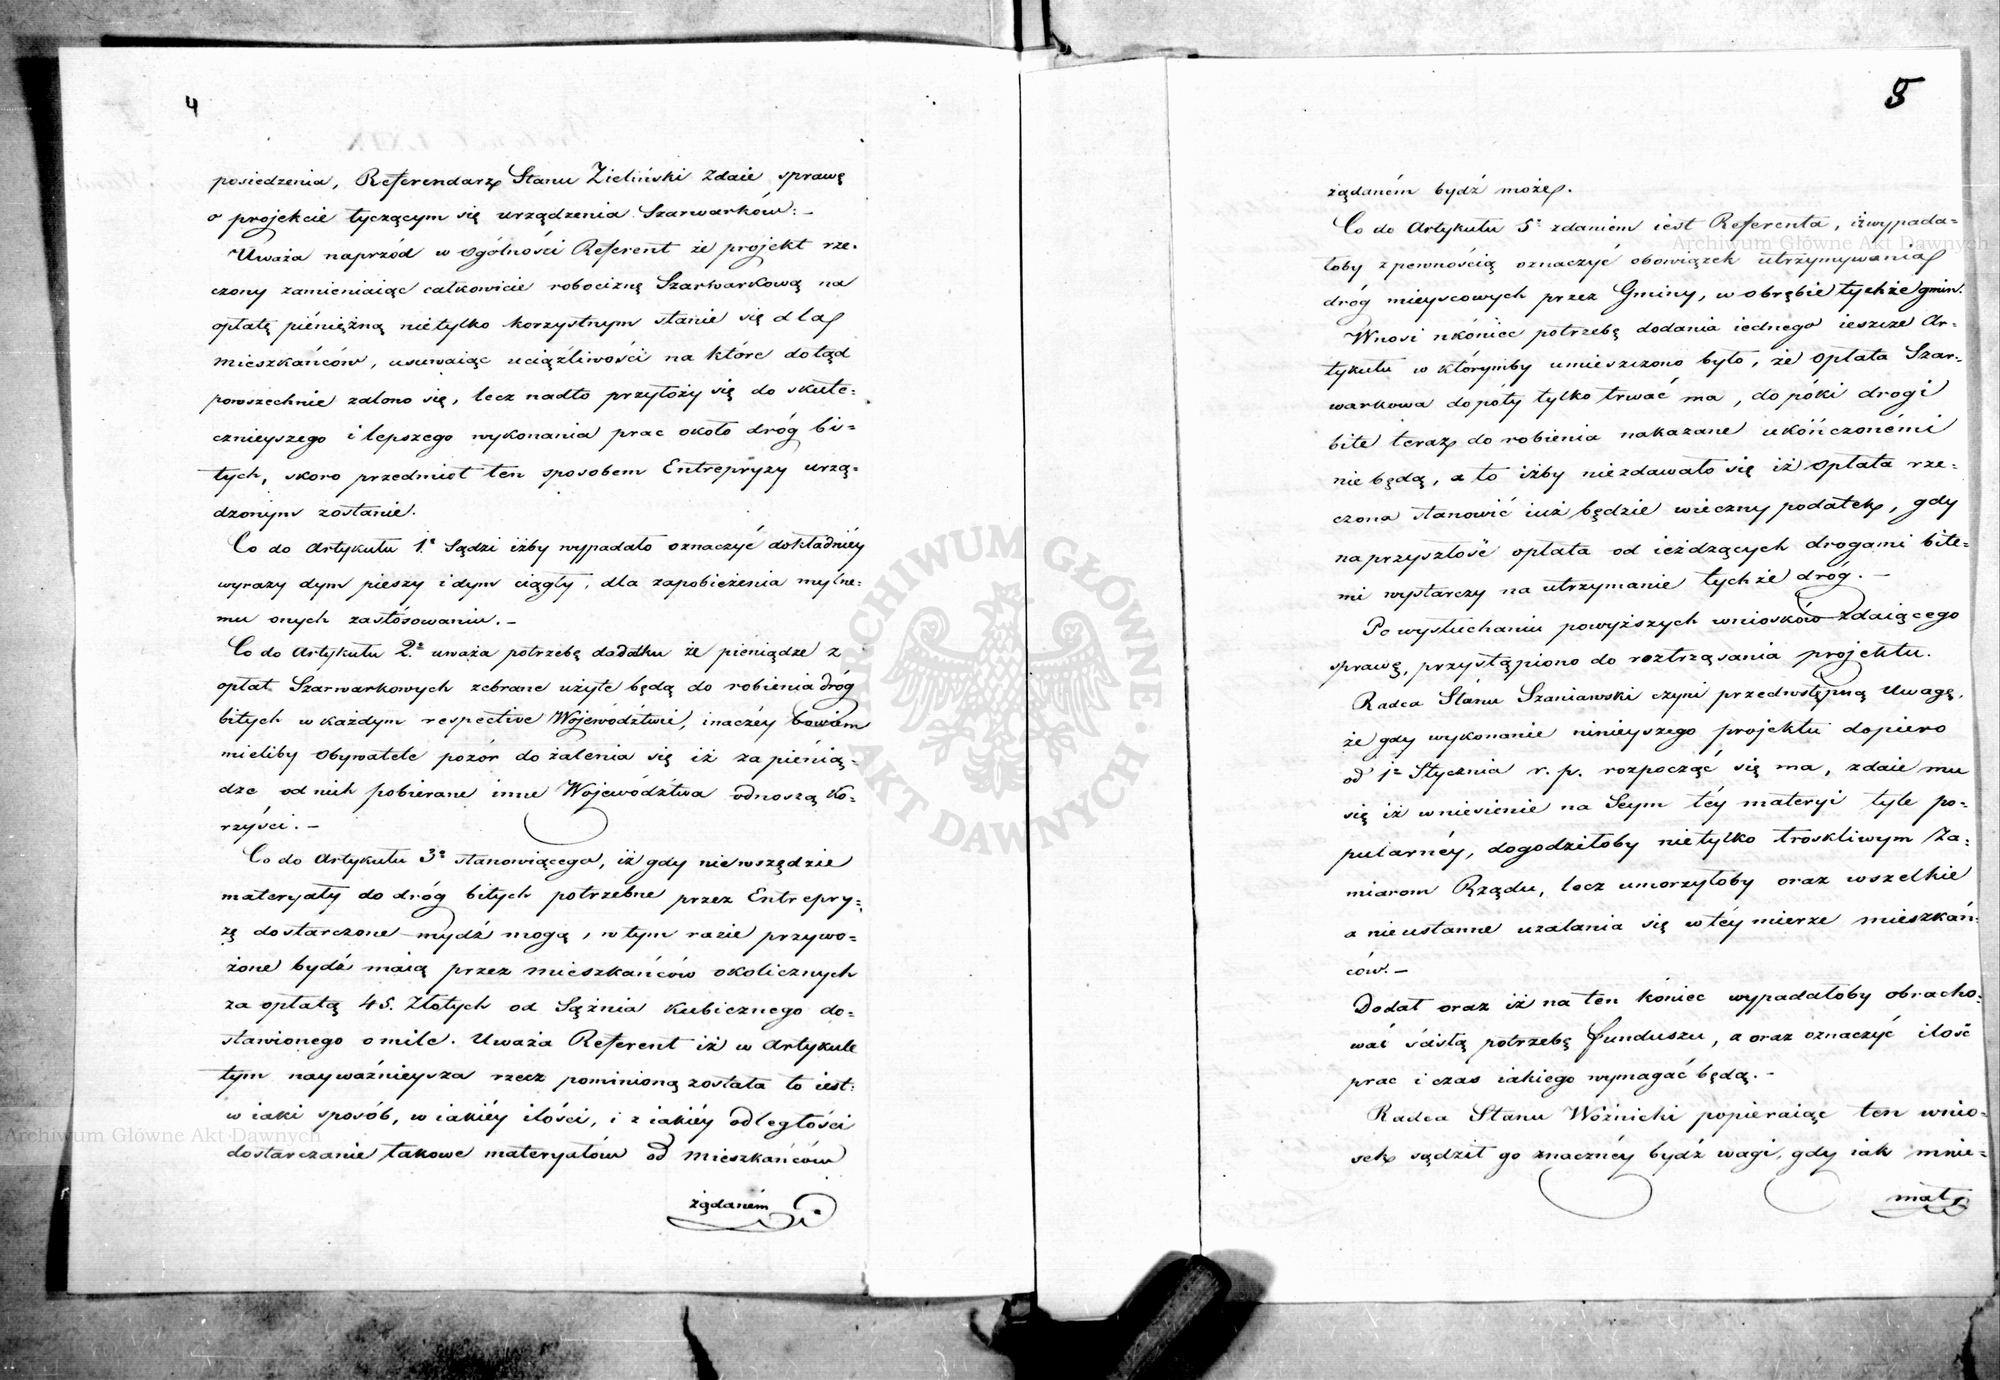 4
posiedzenia, Referendarz Stanu Zieliński zdaie sprawę
o projekcie tyczącym się urządzenia Szarwarków: –
Uważa naprzód w ogólności Referent że projekt rze-
czony zamieniaiąc całkowicie robociznę Szarwarkową na
opłatę piéniężną nietylko korzystnym stanie się dla
mieszkańców, usuwaiąc uciążliwości na które dotąd
powszechnie żalono się, lecz nadto przyłoży się do skute-
cznieyszego i lepszego wykonania prac około dróg bi-
tych, skoro przedmiot ten sposobem Entrepryzy urzą-
dzonym zostanie.
Co do Artykułu 1.º Sądzi iżby wypadało oznaczyć dokładniéy
wyrazy dym pieszy i dym ciągły, dla zapobieżenia mylne-
mu onych zastósowaniu. –
Co do Artykułu 2.º uważa potrzebę dodatku że pieniądze z
opłat Szarwarkowych zebrane użyte będą do robienia dróg
bitych w każdym respective Województwie, inaczéy bowiem
mieliby Obywatele pozór do żalenia się iż za piénią-
dze od nich pobierane inne Województwa odnoszą ko-
rzyści. –
Co do Artykułu 3º stanowiącego, iż gdy nie wszędzie
materyały do dróg bitych potrzebne przez Entrepry-
zę dostarczone mydź mogą, w tym razie przywo-
żone bydź maią przez mieszkańców okolicznych
za opłatą 45. Złotych od Sążnia Kubicznego do-
stawionego o mile. Uważa Referent iż w Artykule
tym nayważnieysza rzecz pominioną została to iest:
w iaki sposób, w iakiéy ilości, i z iakiéy odległości
dostarczanie takowe materyałów od mieszkańców
żądaném
5
żądaném bydź może.
Co do Artykułu 5º zdaniem iest Referenta, iż wypada-
łoby z pewnością oznaczyć obowiązek utrzymywania
dróg mieyscowych przez Gminy, w obrębie tychże gmin.
Wnosi nkóniec potrzebę dodania iednego ieszcze Ar-
tykułu w którymby umieszczono było, że opłata Szar-
warkowa dopóty tylko trwać ma, dopóki drogi
bite teraz do robienia nakazane ukończonémi
nie będą, a to iżby nie zdawało się iż opłata rze-
czona stanowić iuż będzie wieczny podatek, gdy
na przyszłość opłata od ieżdzących drogami bite-
mi wystarczy na utrzymanie tychże dróg. –
Po wysłuchaniu powyższych wniosków zdaiącego
sprawę, przystąpiono do roztrząsania projektu.
Radca Stanu Szaniawski czyni przedwstępną uwagę,
że gdy wykonanie ninieyszego projektu dopiero
od 1º Stycznia r. p. rozpocząć się ma, zdaie mu
się iż wniesienie na Seym téy materyi tyle po-
pularnéy, dogodziłoby nietylko troskliwym Za-
miarom Rządu, lecz umorzyłoby oraz wszelkie
a nieustanne użalania się w téy mierze mieszkań-
ców. –
Dodał oraz iż na ten kóniec wypadałoby obracho-
wać ścisłą potrzebę funduszu, a oraz oznaczyć ilość
prac i czas iakiego wymagać będą. –
Radca Stanu Woźnicki popieraiąc ten wnio-
sek sądził go znacznéy bydź wagi, gdy iak mnie-
mał
Archiwum Główne Akt Dawnych
ARCHIWUM GŁÓWNE AKT DAWNYCH
Archiwum Główne Akt Dawnych